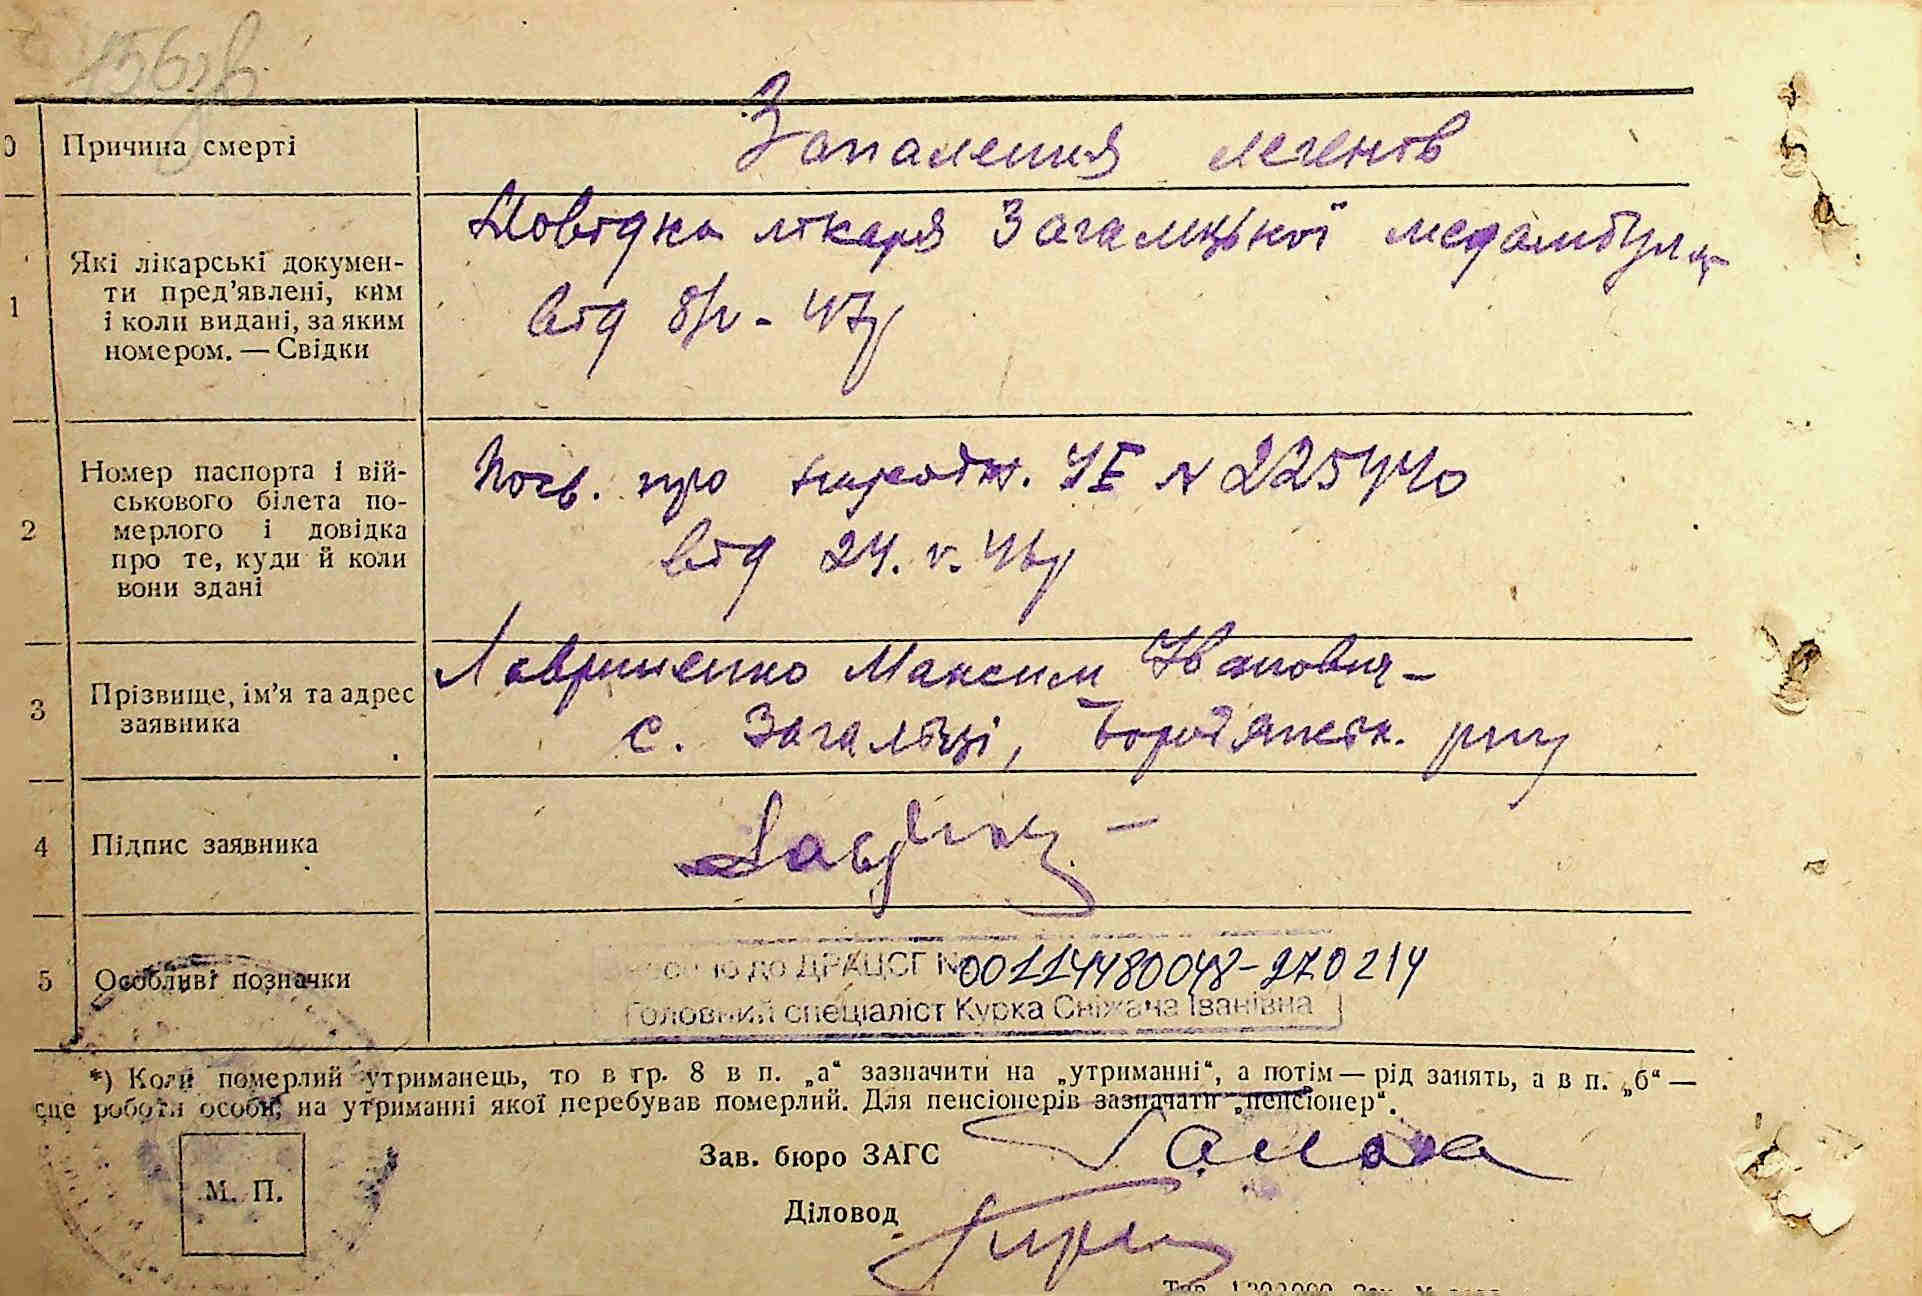 0 Причина смерті Запалення легенів
1 Які лікарські докумен-
ти пред'явлені, ким
і коли видані, за яким
номером. — Свідки
Довідка лікаря Загальцької медамбул
від 8/IV - 47р
2 Номер паспорта і вій-
ськового білета по-
мерлого і довідка
про те, куди й коли
вони здані
Посв. про народж. УЕ N 225440
від 24. V. 46р
3 Прізвище, ім'я та адрес
заявника
Лавриненко Максим Іванович -
с. Загальці, Бородянськ. р-ну
4 Підпис заявника
5 Особливі позначки
до ДРАЦСГ № 00114480048-270214
Головний спеціаліст Курка Сніжана Іванівна
*) Коли померлий утриманець, то в гр. 8 в п. „а“ зазначити на „утриманні“, а потім — рід занять, а в п. „б“ —
сце роботи особи, на утриманні якої перебував померлий. Для пенсіонерів зазначати „пенсіонер“.
Зав. бюро ЗАГС
М. П.
Діловод